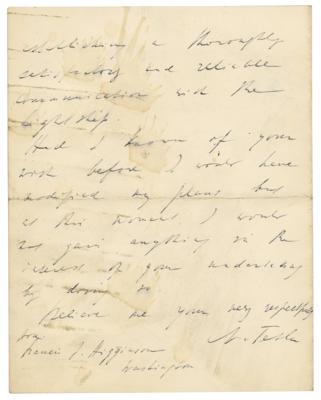 establishing a thoroughly
satisfactory and reliable
communication with the
light ship.
Had I known of your
wish before I would have
modified my plans but
at this moment I would
not gain anything in the
interest of your undertaking
by doing so
Believe me yours very respectfully
N. Tesla
Francis J. Higginson
Washington